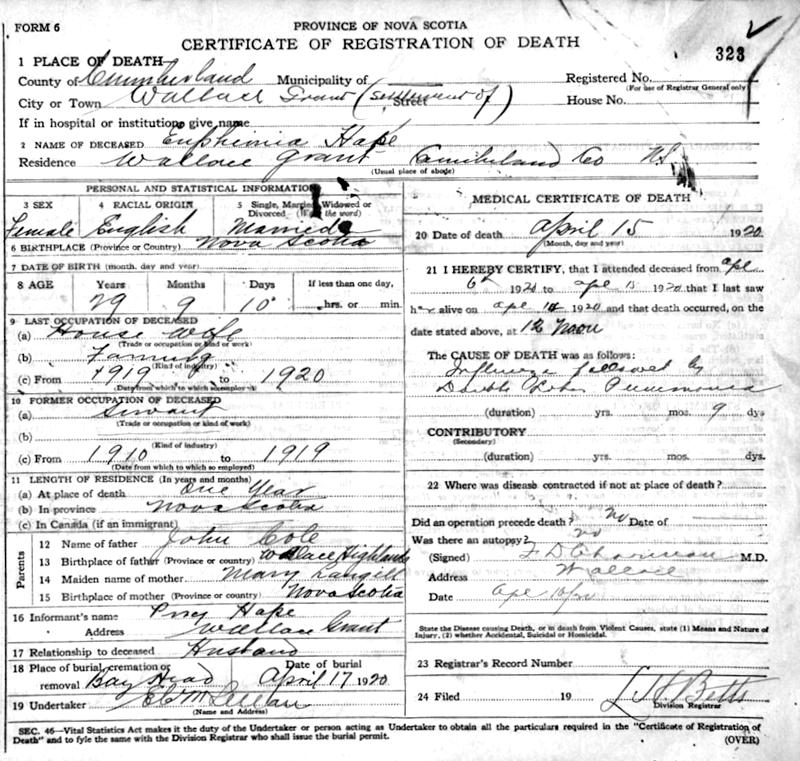 FORM 6
PROVINCE OF NOVA SCOTIA
CERTIFICATE OF REGISTRATION OF DEATH
323
1 PLACE OF DEATH—
County of Cumberland Municipality of
Registered No.
(For use of Registrar General only)
City or Town Wallace Grant (Settlement of) Street
House No.
If in hospital or institution, give name
2 NAME OF DECEASED Euphimia Hape
Residence Wallace Grant Cumberland Co N.S.
(Usual place of abode)
PERSONAL AND STATISTICAL INFORMATION
3 SEX 4 RACIAL ORIGIN 5 Single, Married, Widowed or Divorced (Write the word)
Female English Married
6 BIRTHPLACE (Province or Country) Nova Scotia
7 DATE OF BIRTH (month, day and year)
8 AGE Years Months Days If less than one day,
29 9 10 hrs. or min.
9 LAST OCCUPATION OF DECEASED
(a) House Wife
(Trade or occupation or kind of work)
(b) Farming
(Kind of industry)
(c) From 1919 to 1920
(Date from which to which so employed)
10 FORMER OCCUPATION OF DECEASED
(a) Servant
(Trade or occupation or kind of work)
(b)
(Kind of industry)
(c) From 1910 to 1919
(Date from which to which so employed)
11 LENGTH OF RESIDENCE (In years and months)
(a) At place of death One Year
(b) In province Nova Scotia
(c) In Canada (if an immigrant)
Parents
12 Name of father John Cole
13 Birthplace of father (Province or country) Wallace Highlands
14 Maiden name of mother Mary Langill
15 Birthplace of mother (Province or country) Nova Scotia
16 Informant's name Percy Hape
Address Wallace Grant
17 Relationship to deceased Husband
18 Place of burial, cremation or removal Bay Head Date of burial April 17 1920
19 Undertaker
(Name and Address)
MEDICAL CERTIFICATE OF DEATH
20 Date of death April 15 1920
(Month, day and year)
21 I HEREBY CERTIFY, that I attended deceased from apl
6th 1920 to apl 15 1920 that I last saw
her alive on apl 14 1920 and that death occurred, on the
date stated above, at 12 Noon
The CAUSE OF DEATH was as follows:
Influenza followed by
Double Lobar Pneumonia
(duration) yrs. mos. 9 dys
CONTRIBUTORY
(Secondary)
(duration) yrs. mos. dys.
22 Where was disease contracted if not at place of death?
Did an operation precede death? no Date of
Was there an autopsy? no
(Signed) M.D.
Address Wallace
Date
State the Disease causing Death, or in death from Violent Causes, state (1) Means and Nature of
Injury, (2) whether Accidental, Suicidal or Homicidal.
23 Registrar's Record Number
24 Filed 19 L H Betts
Division Registrar
SEC. 46—Vital Statistics Act makes it the duty of the Undertaker or person acting as Undertaker to obtain all the particulars required in the "Certificate of Registration of
Death" and to fyle the same with the Division Registrar who shall issue the burial permit.
(OVER)